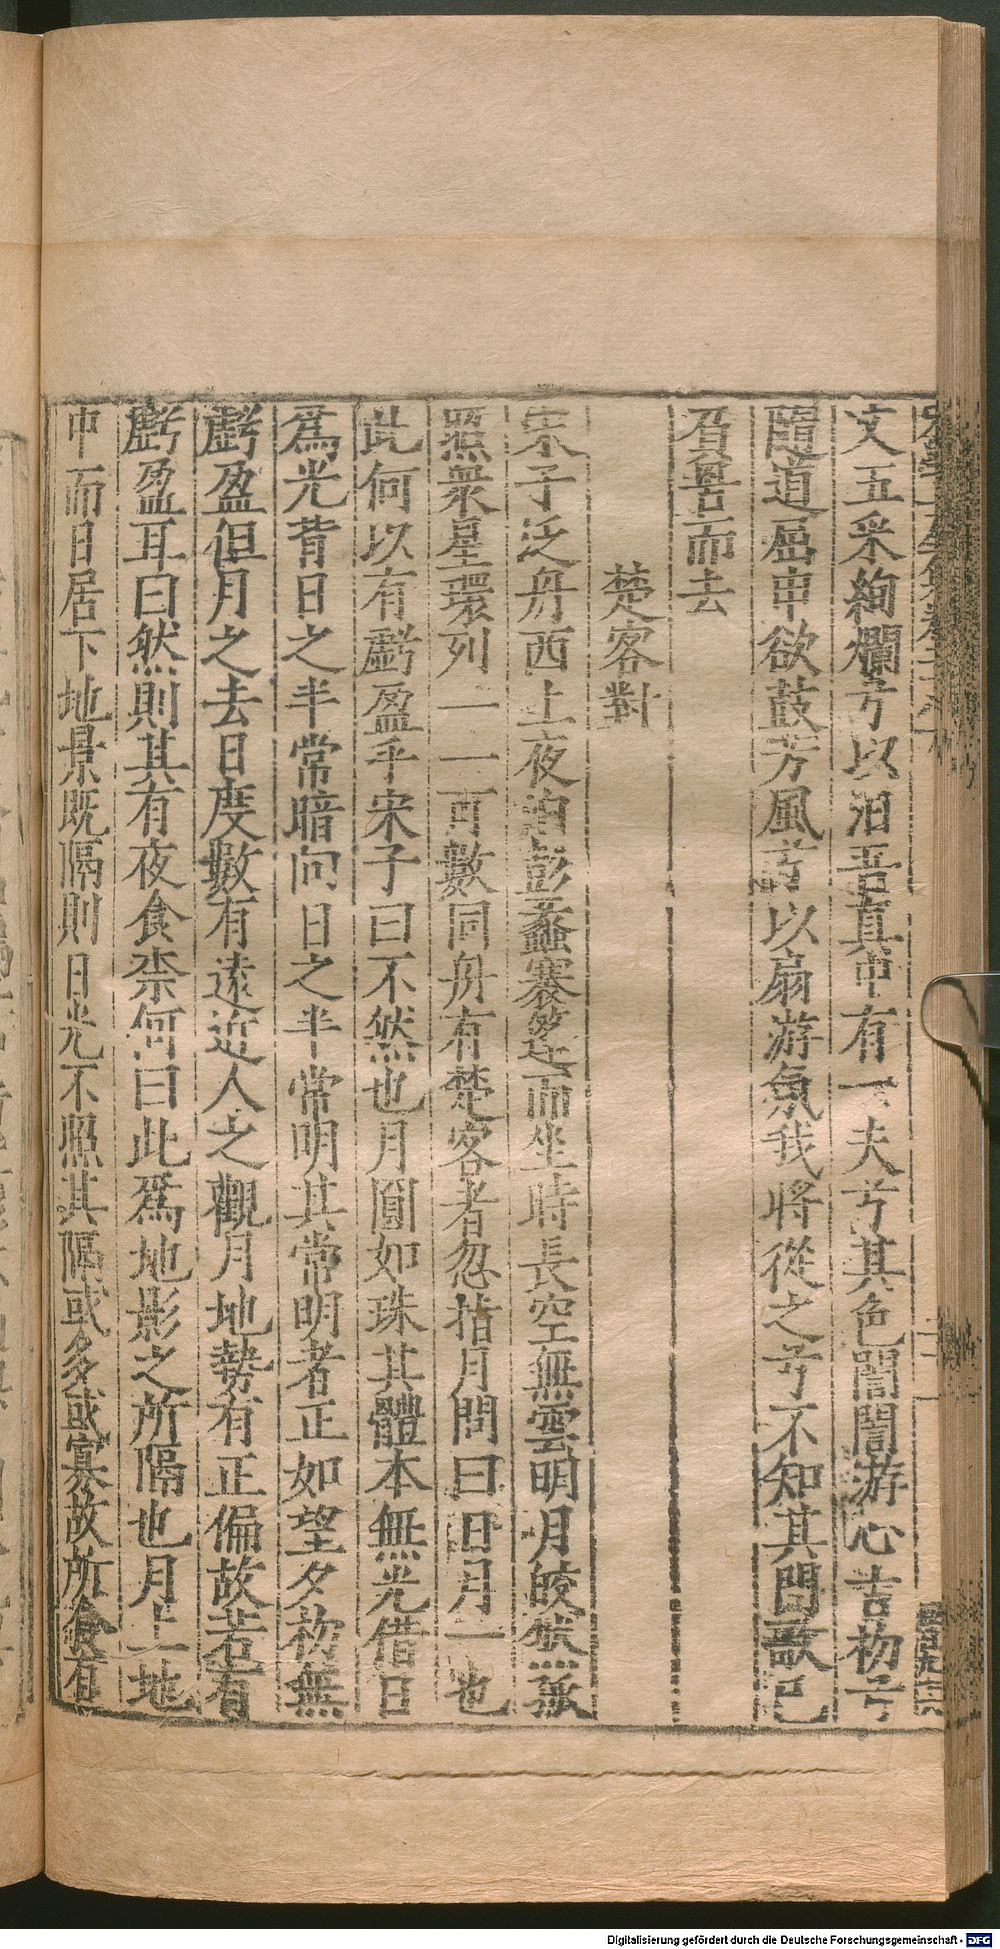 文五采絢爛兮以汨吾真中有一夫兮其色誾誾游心吉初兮
隨道屈申欲鼓芳風兮以扇游氛我將從之兮不知其門歌已
負畚而去
楚客對
宋子泛舟西上夜泊彭蠡褰篷而坐時長空無雲明月皎然孤
照衆星環列一一可數同舟有楚客者忽指月問曰日月一也
此何以有虧盈乎宋子曰不然也月圓如珠其體本無光借日
爲光背日之半常暗向日之半常明其常明者正如望夕初無
虧盈但月之去日度數有遠近人之觀月地勢有正偏故若有
虧盈耳曰然則其有夜食柰何曰此爲地影之所隔也月上地
中而日居下地景既隔則日光不照其隔或多或寡故所食有
Digitalisierung gefördert durch die Deutsche Forschungsgemeinschaft - DFG